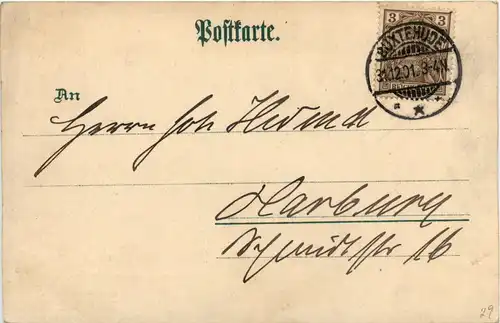 Postkarte.
3 3
BUXTEHUDE
31.12.01. 3-4N.
An
Herrn Joh
Harburg
Schmidtstr 16
29